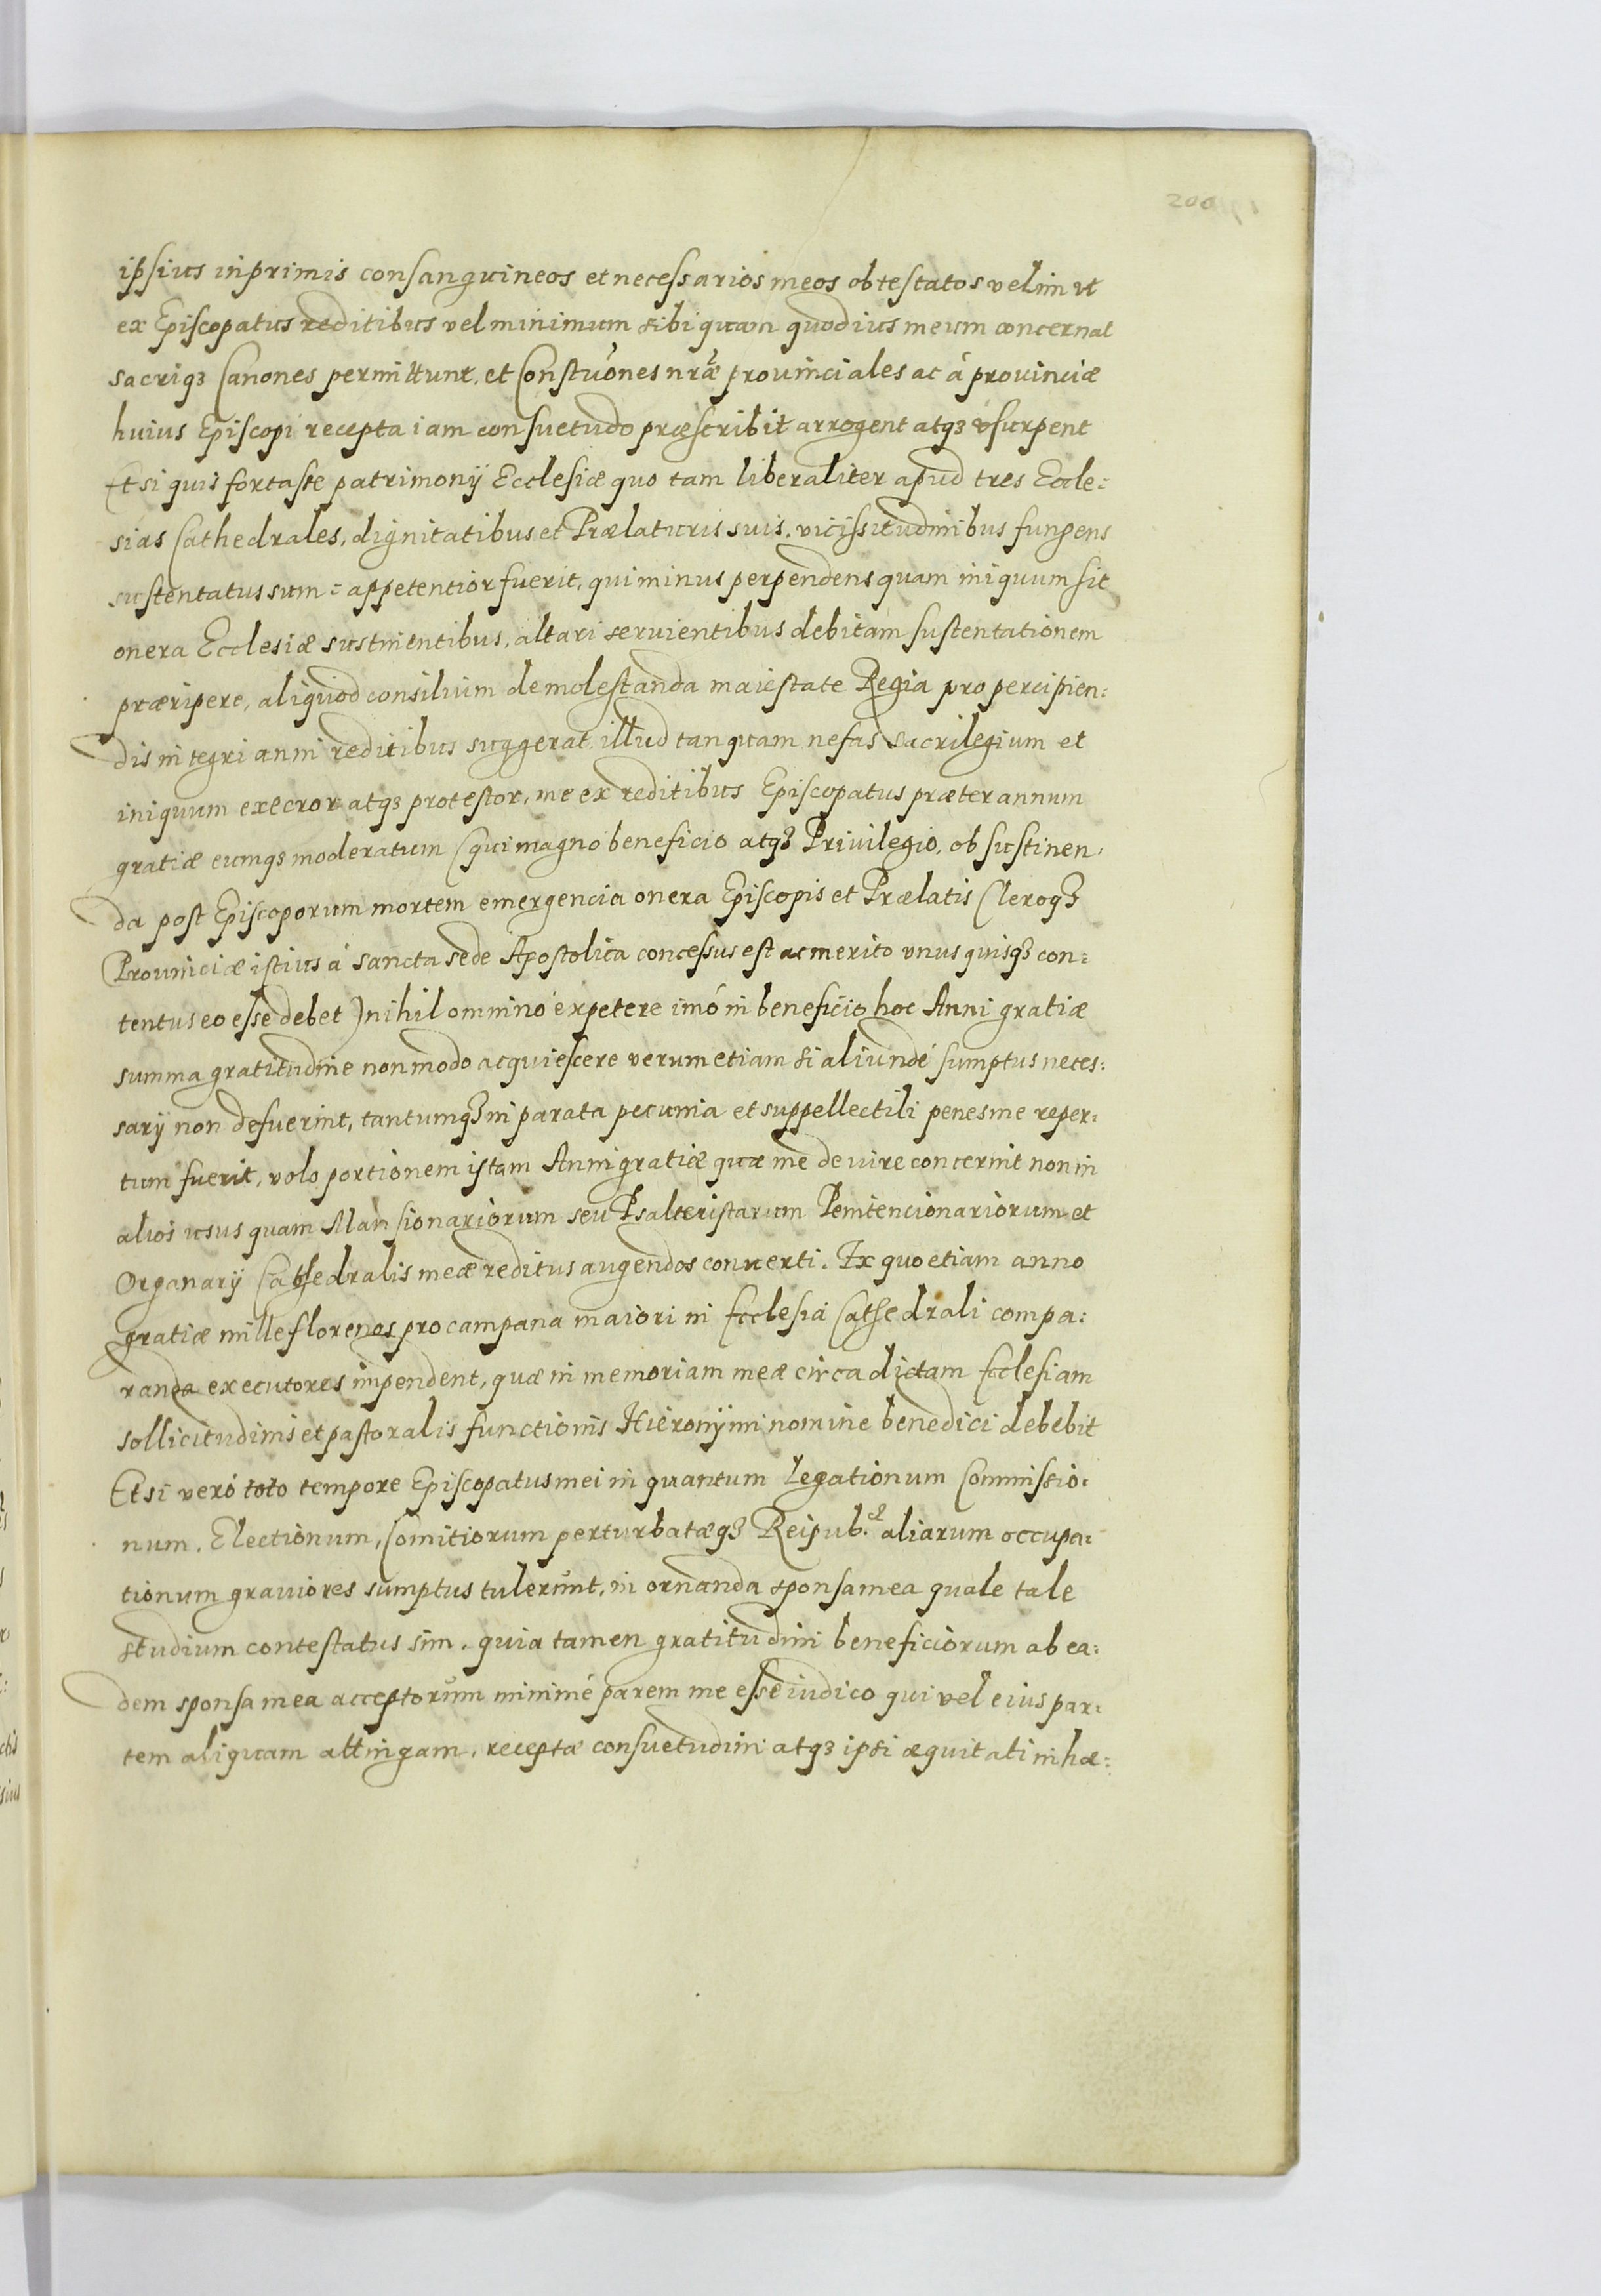 200
ipsius inprimis consanguineos et necessarios meos obtestatos velim ut
ex Episcopatus reditibus vel minimum sibi quam quod ius meum concernat
sacriqꝫ Canones permittunt, et Constuones nræ prouinciales ac á prouinciæ
huius Episcopi recepta iam consuetudo præscribit arrogent atqꝫ vsurpent
Et si quis fortasse patrimonÿ Ecclesiæ quo tam liberaliter apud tres Eccle:
sias Cathedrales, dignitatibus et Prælaturis suis, vicissitudinibus fungens
sustentatus sum: appetentior fuerit, qui minus perpendens quam iniquum sit
onera Ecclesiæ sustinentibus, altari seruientibus debitam sustentationem
præripere, aliquod consilium de molestanda maiestate Regia pro percipien:
dis integri anni reditibus suggerat, illud tanquam nefas sacrilegium et
iniquum execror atqꝫ protestor, me ex reditibus Episcopatus præter annum
gratiæ eumqꝫ moderatum (qui magno beneficio atqꝫ Priuilegio, ob sustinen:
da post Episcoporum mortem emergencia onera Episcopis et Prælatis Cleroqꝫ
Prouinciæ istius á sancta sede Apostolica concessus est ac merito vnusquisqꝫ con:
tentus eo esse debet) nihil omnino expetere imó in beneficio hoc Anni gratiæ
summa gratitudine non modo acquiescere verum etiam si aliundé sumptus neces:
sarÿ non defuerint, tantumqꝫ in parata pecunia et suppellectili penes me reper:
tum fuerit, volo portionem istam Anni gratiæ quæ me de iure concernit non in
alios usus quam Mansionariorum seu Psalteristarum Penitencionariorum et
Organarÿ Cathedralis meæ reditus augendos conuerti. Ex quo etiam anno
gratiæ mille florenos pro campana maiori in Ecclesia Cathedrali compa:
randa executores impendent, quæ in memoriam meæ circa dictam Ecclesiam
sollicitudinis et pastoralis functionis Hieronÿmi nomine benedici debebit
Etsi veró toto tempore Episcopatus mei in quantum Legationum Commissio:
num, Electionum, Comitiorum perturbatæqꝫ Reipub. aliarum occupa:
tionum grauiores sumptus tulerunt, in ornanda sponsa mea quale tale
studium contestatus sim, quia tamen gratitudini beneficiorum ab ea:
dem sponsa mea acceptorum minimé parem me esse iudico qui vel eius par:
tem aliquam attingam, receptæ consuetudini atqꝫ ipsi æquitati inhæ: